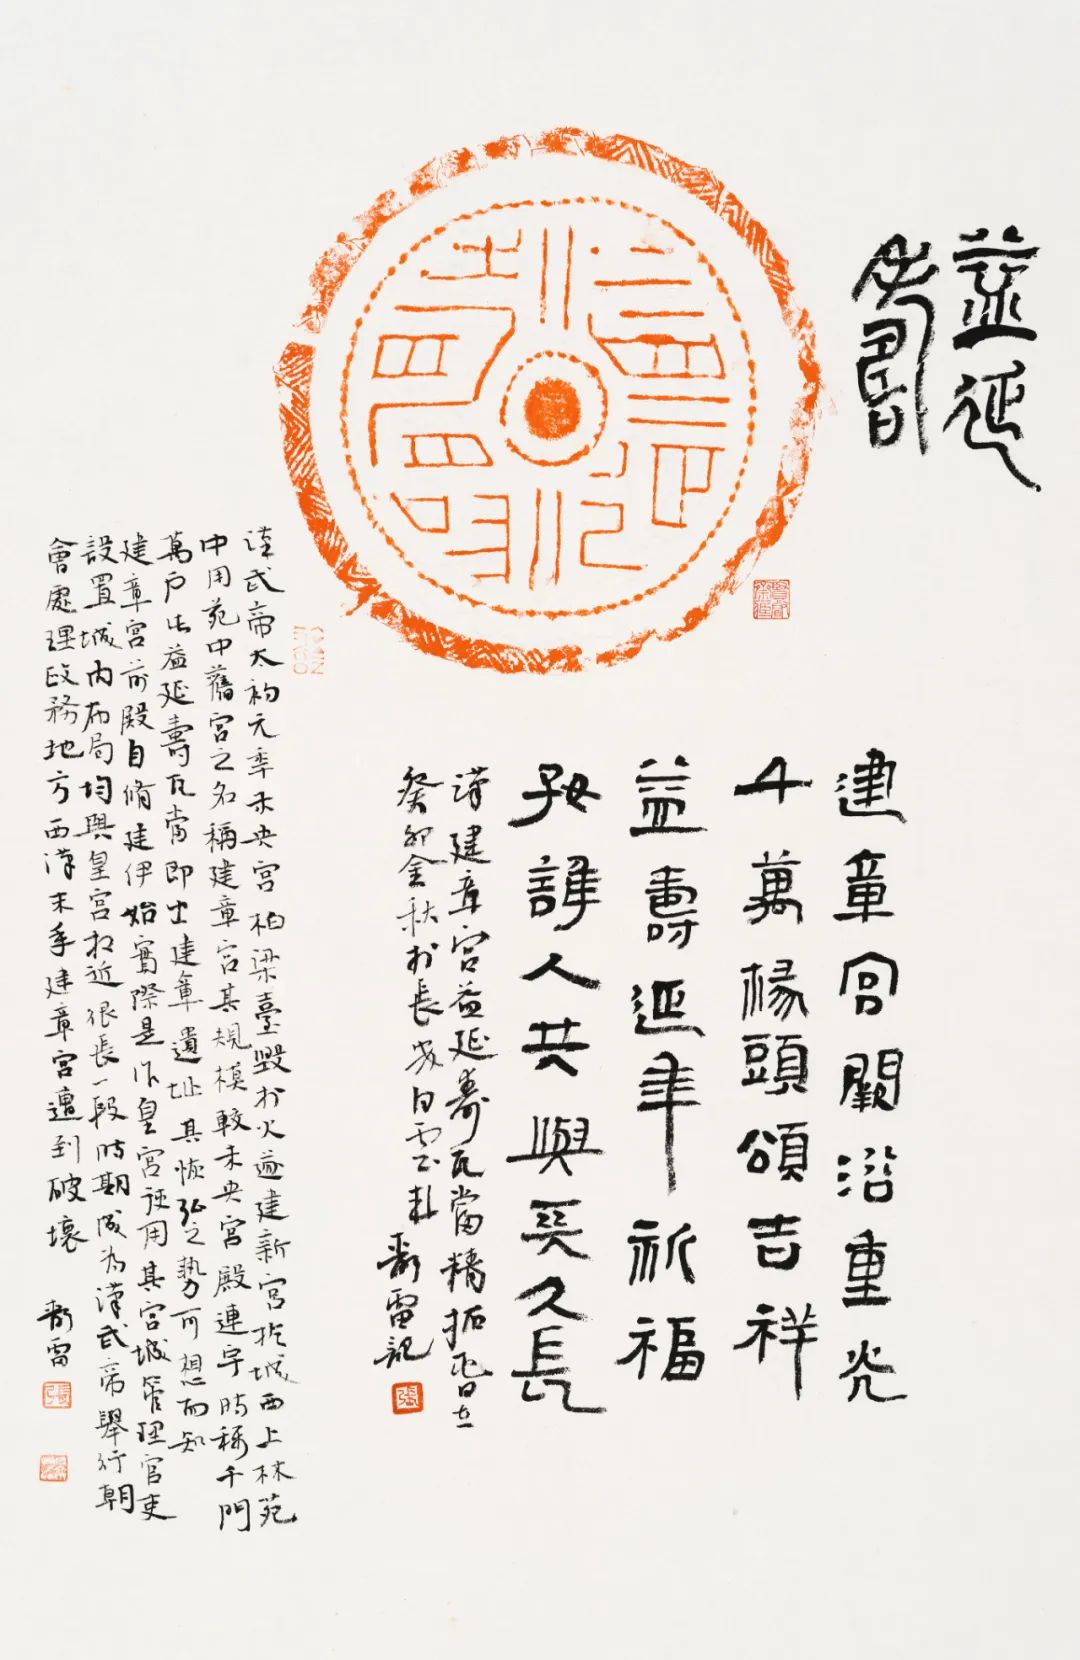 益延
壽
益延壽
建章宫闕沿重光
千萬椽頭頌吉祥
益壽延年祈福
孜譁人共與天久長
漢建章宫益延壽瓦當精拓
癸卯金秋於長安白雲
壽雷記
張
漢武帝太初元年未央宫柏梁臺毁於火遂建新宫於城西上林苑
中用苑中舊宫之名稱建章宫其規模較未央宫殿連宇時稱千門
萬户此益延壽瓦當即出建章遺址其恢弘之勢可想而知
建章宫前殿自脩建伊始實際是作皇宫使用其宫城管理官吏
設置城内布局均與皇宫相近很長一段時期成为漢武帝舉行朝
會處理政務地方西漢末年建章宫遭到破壞
壽雷
張